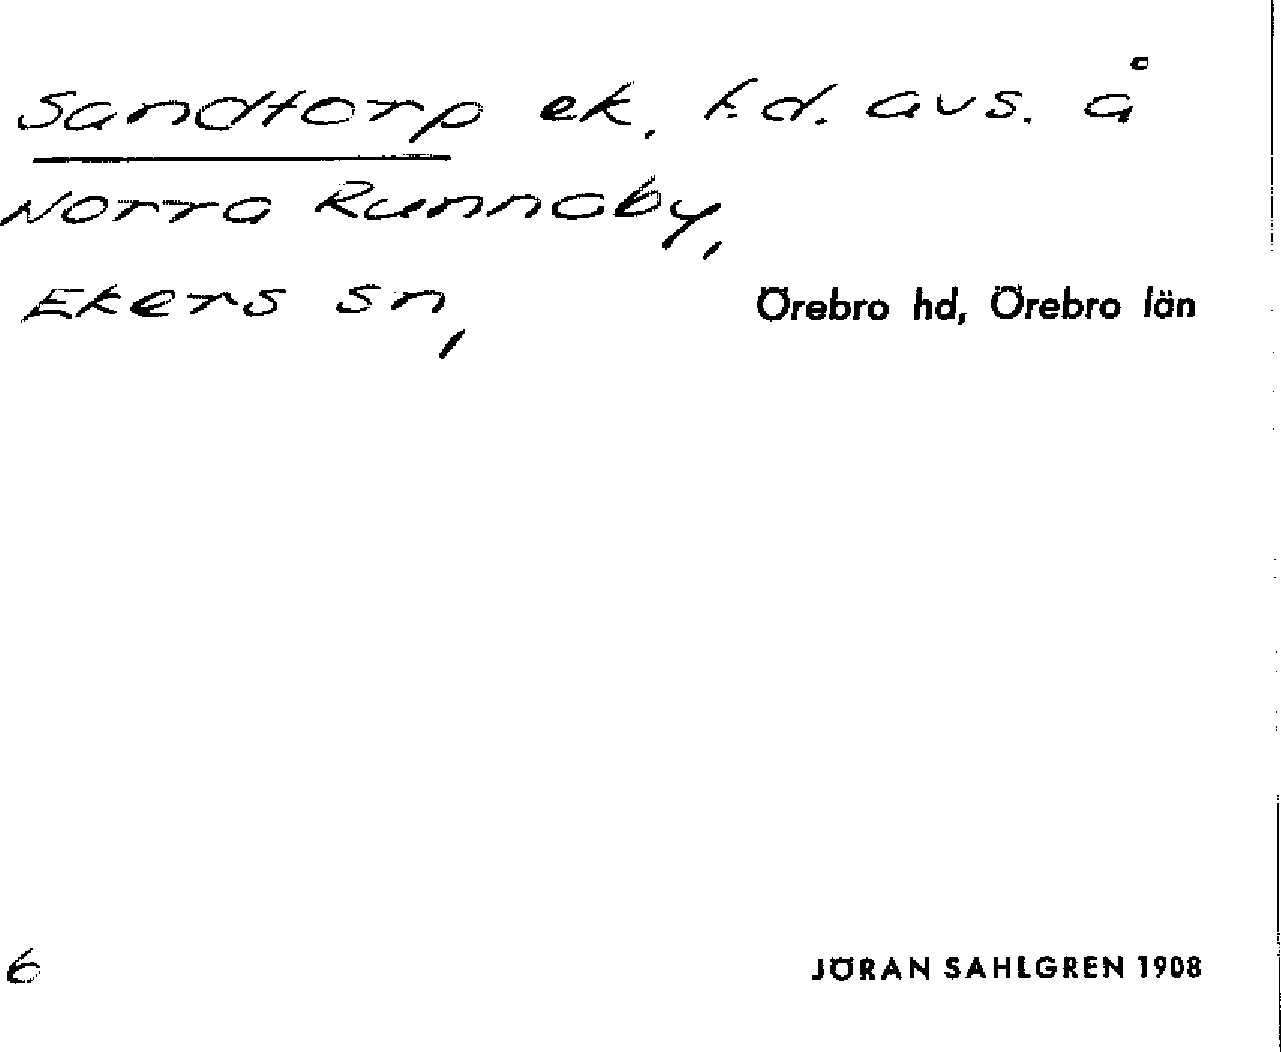 Sandtorp ek. f.d. avs. å
Norra Runnaby,
Ekers sn, Örebro hd, Örebro län
6 JÖRAN SAHLGREN 1908